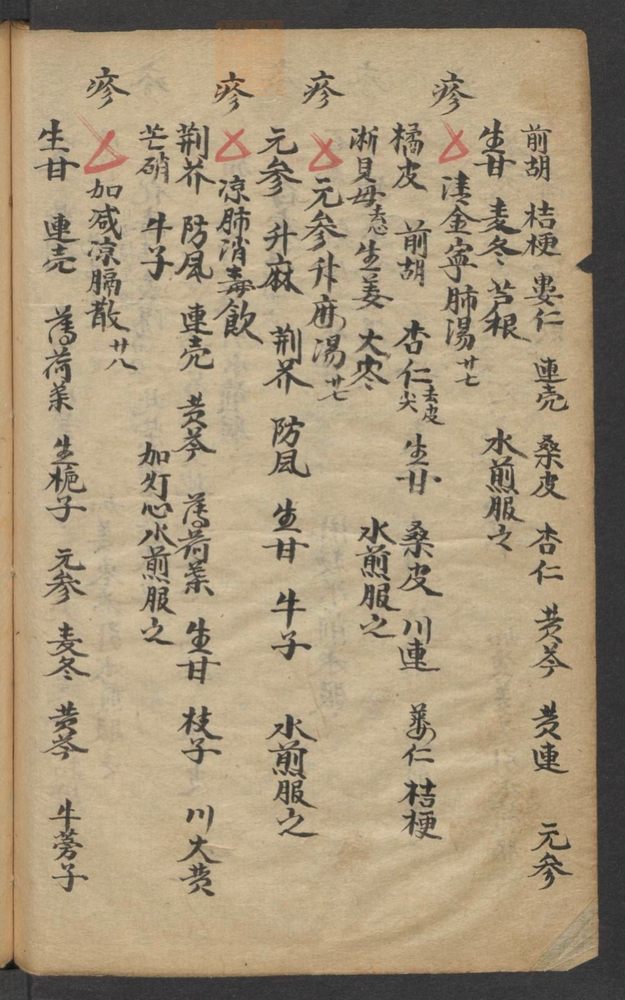 前胡 桔梗 婁仁 連壳 桑皮 杏仁 黄芩 黄連 元参
生甘 麦冬 芦根 水煎服之
疹 清金寧肺湯 廿七
橘皮 前胡 杏仁去皮尖 生甘 桑皮 川連 蒌仁 桔梗
淅貝母去心 生姜 大枣 水煎服之
疹 元参升麻湯 廿七
元参 升麻 荆芥 防风 生甘 牛子 水煎服之
疹 凉肺消毒飲
荆芥 防风 連壳 黄芩 薄荷葉 生甘 枝子 川大黄
芒硝 牛子 加灯心水煎服之
疹 加减凉膈散 廿八
生甘 連壳 薄荷葉 生栀子 元参 麦冬 黄芩 牛蒡子